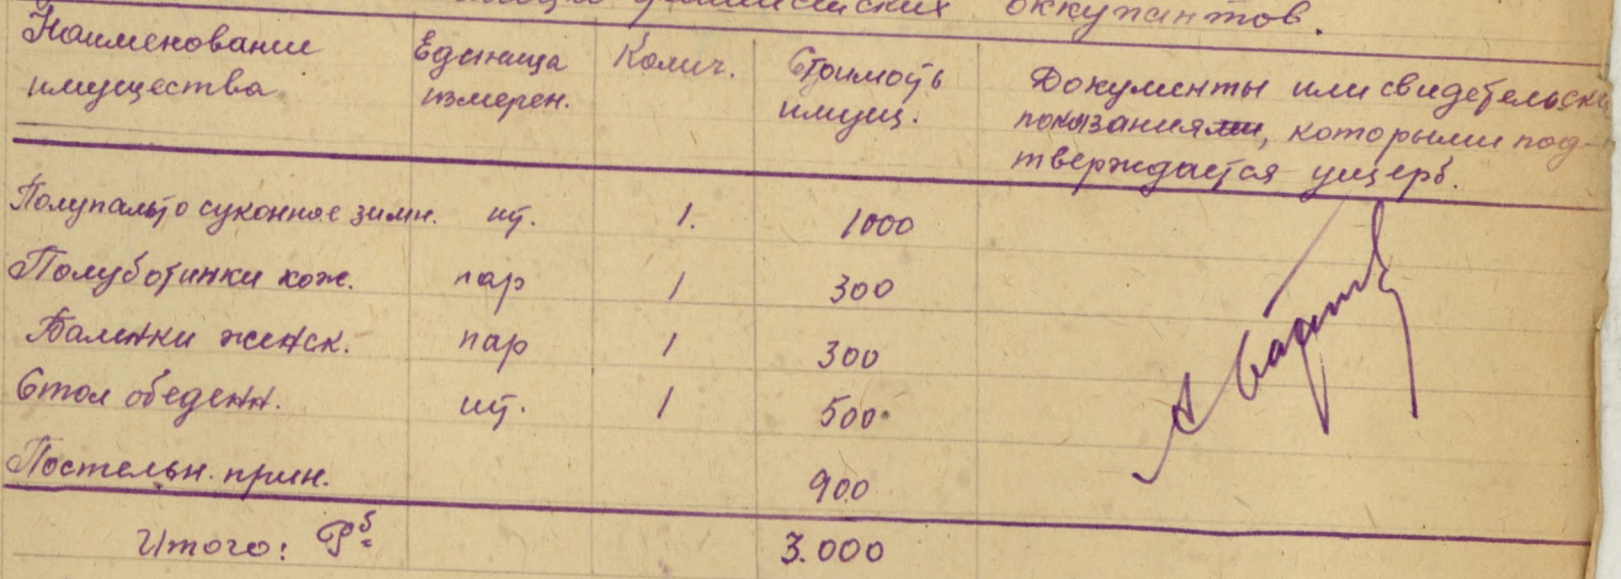 фашистских оккупантов.
Наименование имущества Единица измерен. Колич. Стоимость имущ. Документы или свидетельски показания, которыми под-тверждается ущерб.
Полупальто суконное зимн. шт. 1. 1000
Полуботинки кож. пар 1 300
Валенки женск. пар 1 300
Стол обеденн. шт. 1 500
Постельн. прин. 900
Итого: Рб 3.000